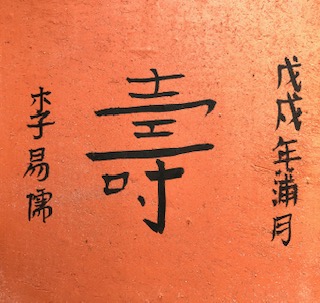 戊戌年蒲月
壽
李易儒